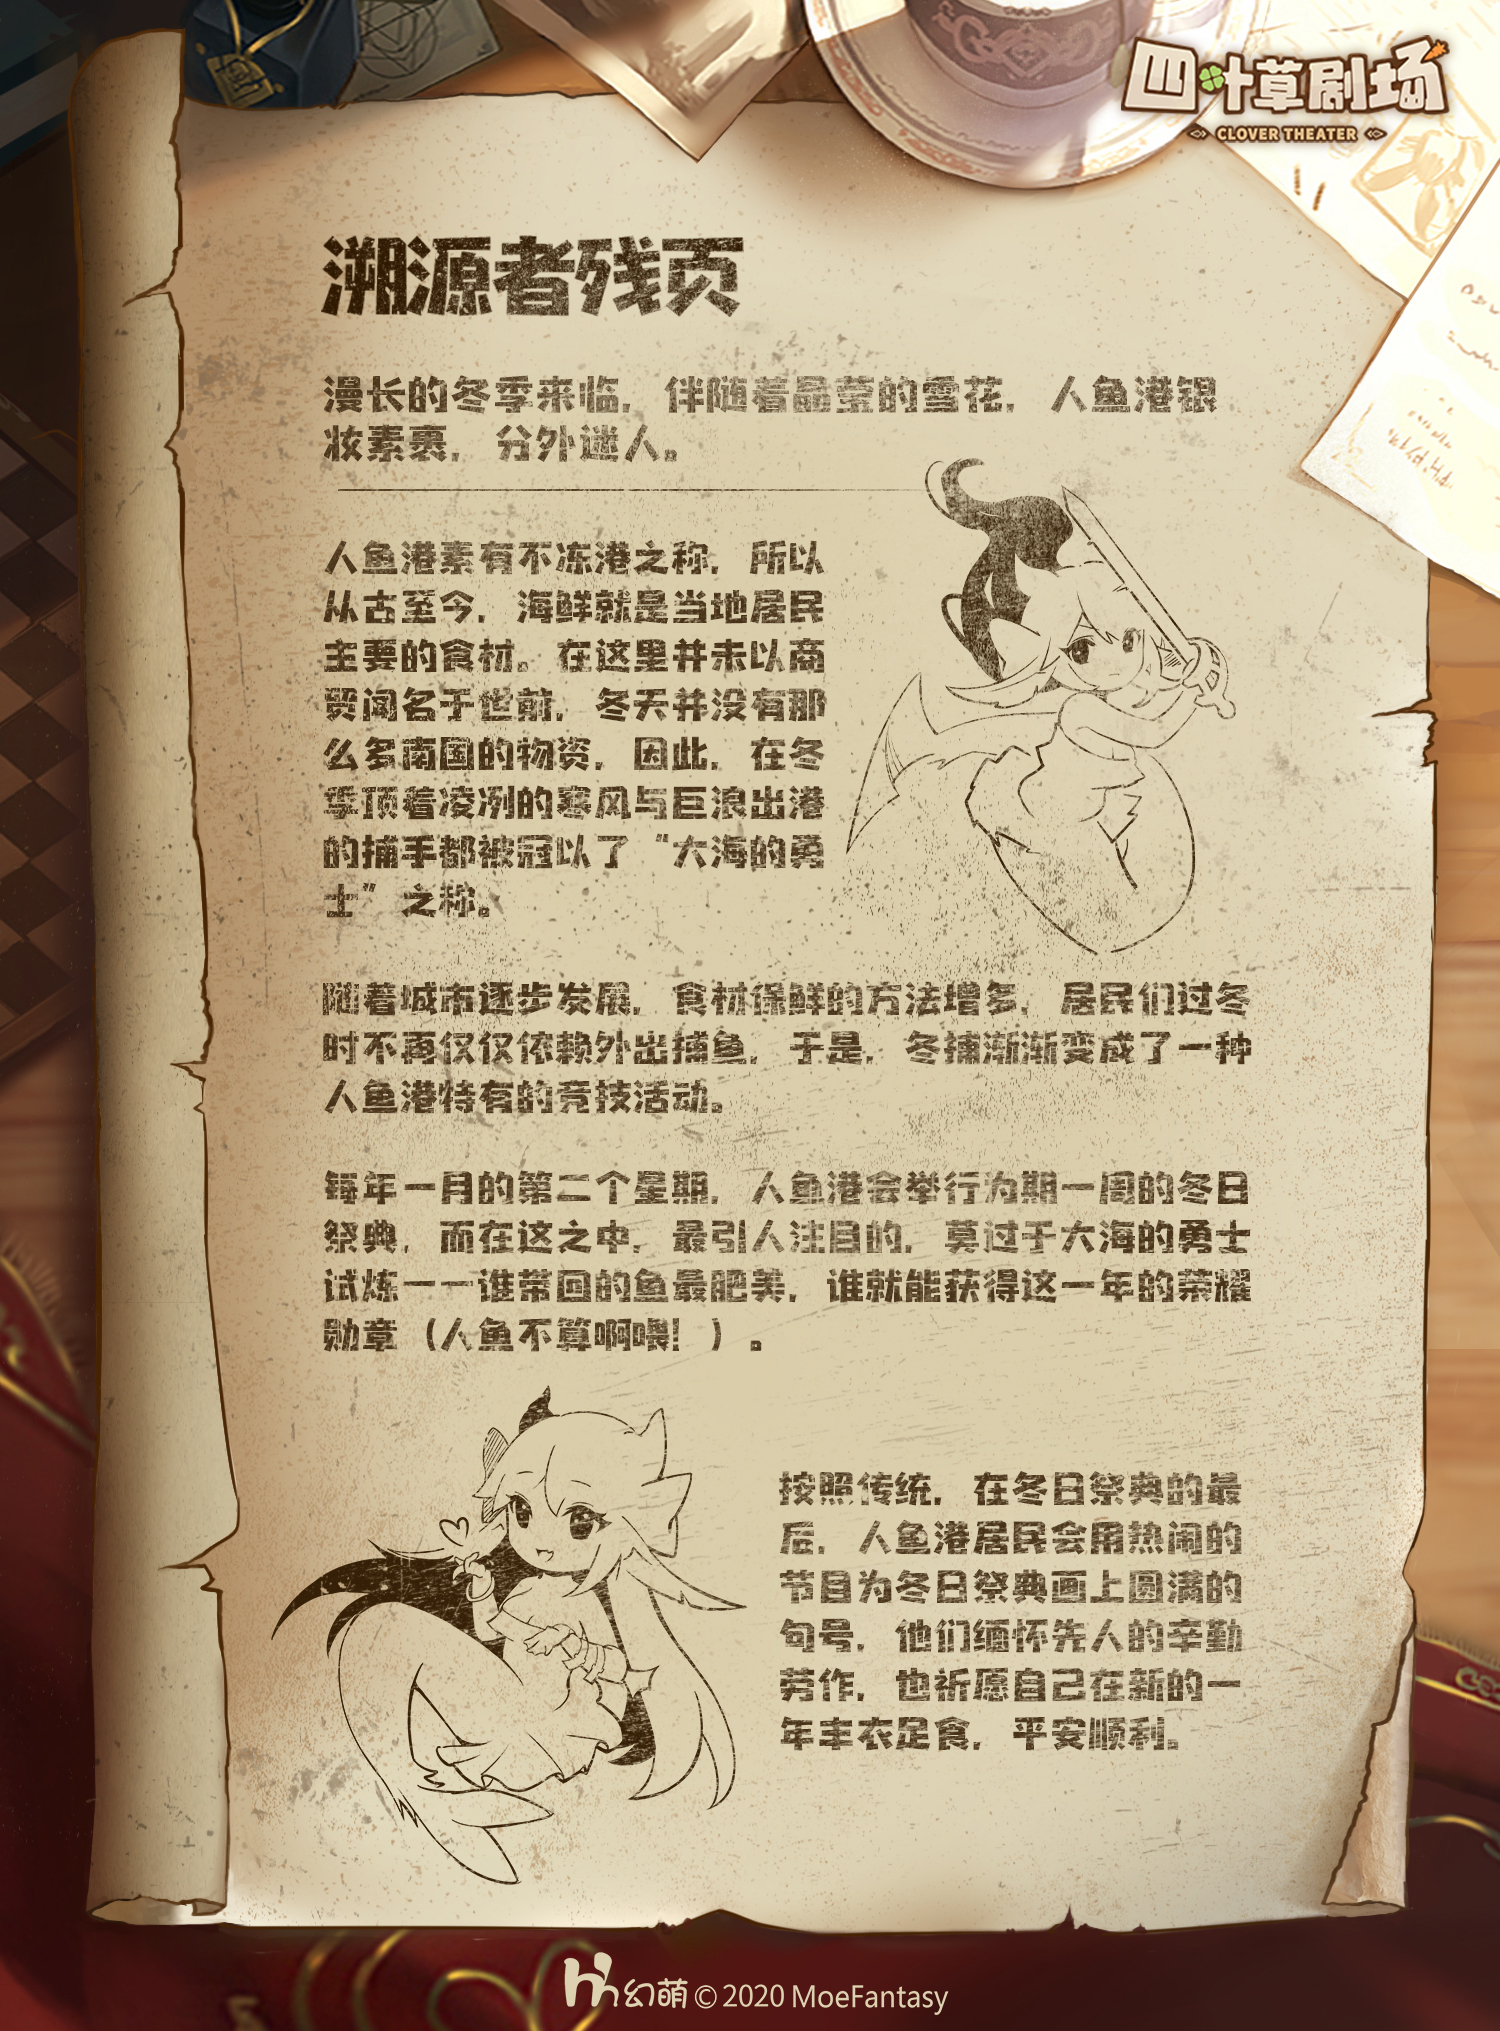 四叶草剧场
CLOVER THEATER
溯源者残页
漫长的冬季来临，伴随着晶莹的雪花，人鱼港银
妆素裹，分外迷人。
人鱼港素有不冻港之称，所以
从古至今，海鲜就是当地居民
主要的食材。在这里并未以商
贸闻名于世前，冬天并没有那
么多南国的物资，因此，在冬
季顶着凌冽的寒风与巨浪出港
的捕手都被冠以了“大海的勇
士”之称。
随着城市逐步发展，食材保鲜的方法增多，居民们过冬
时不再仅仅依赖外出捕鱼，于是，冬捕渐渐变成了一种
人鱼港特有的竞技活动。
每年一月的第二个星期，人鱼港会举行为期一周的冬日
祭典，而在这之中，最引人注目的，莫过于大海的勇士
试炼——谁带回的鱼最肥美，谁就能获得这一年的荣耀
勋章（人鱼不算啊喂！）。
按照传统，在冬日祭典的最
后，人鱼港居民会用热闹的
节目为冬日祭典画上圆满的
句号，他们缅怀先人的辛勤
劳作，也祈愿自己在新的一
年丰衣足食，平安顺利。
幻萌 © 2020 MoeFantasy